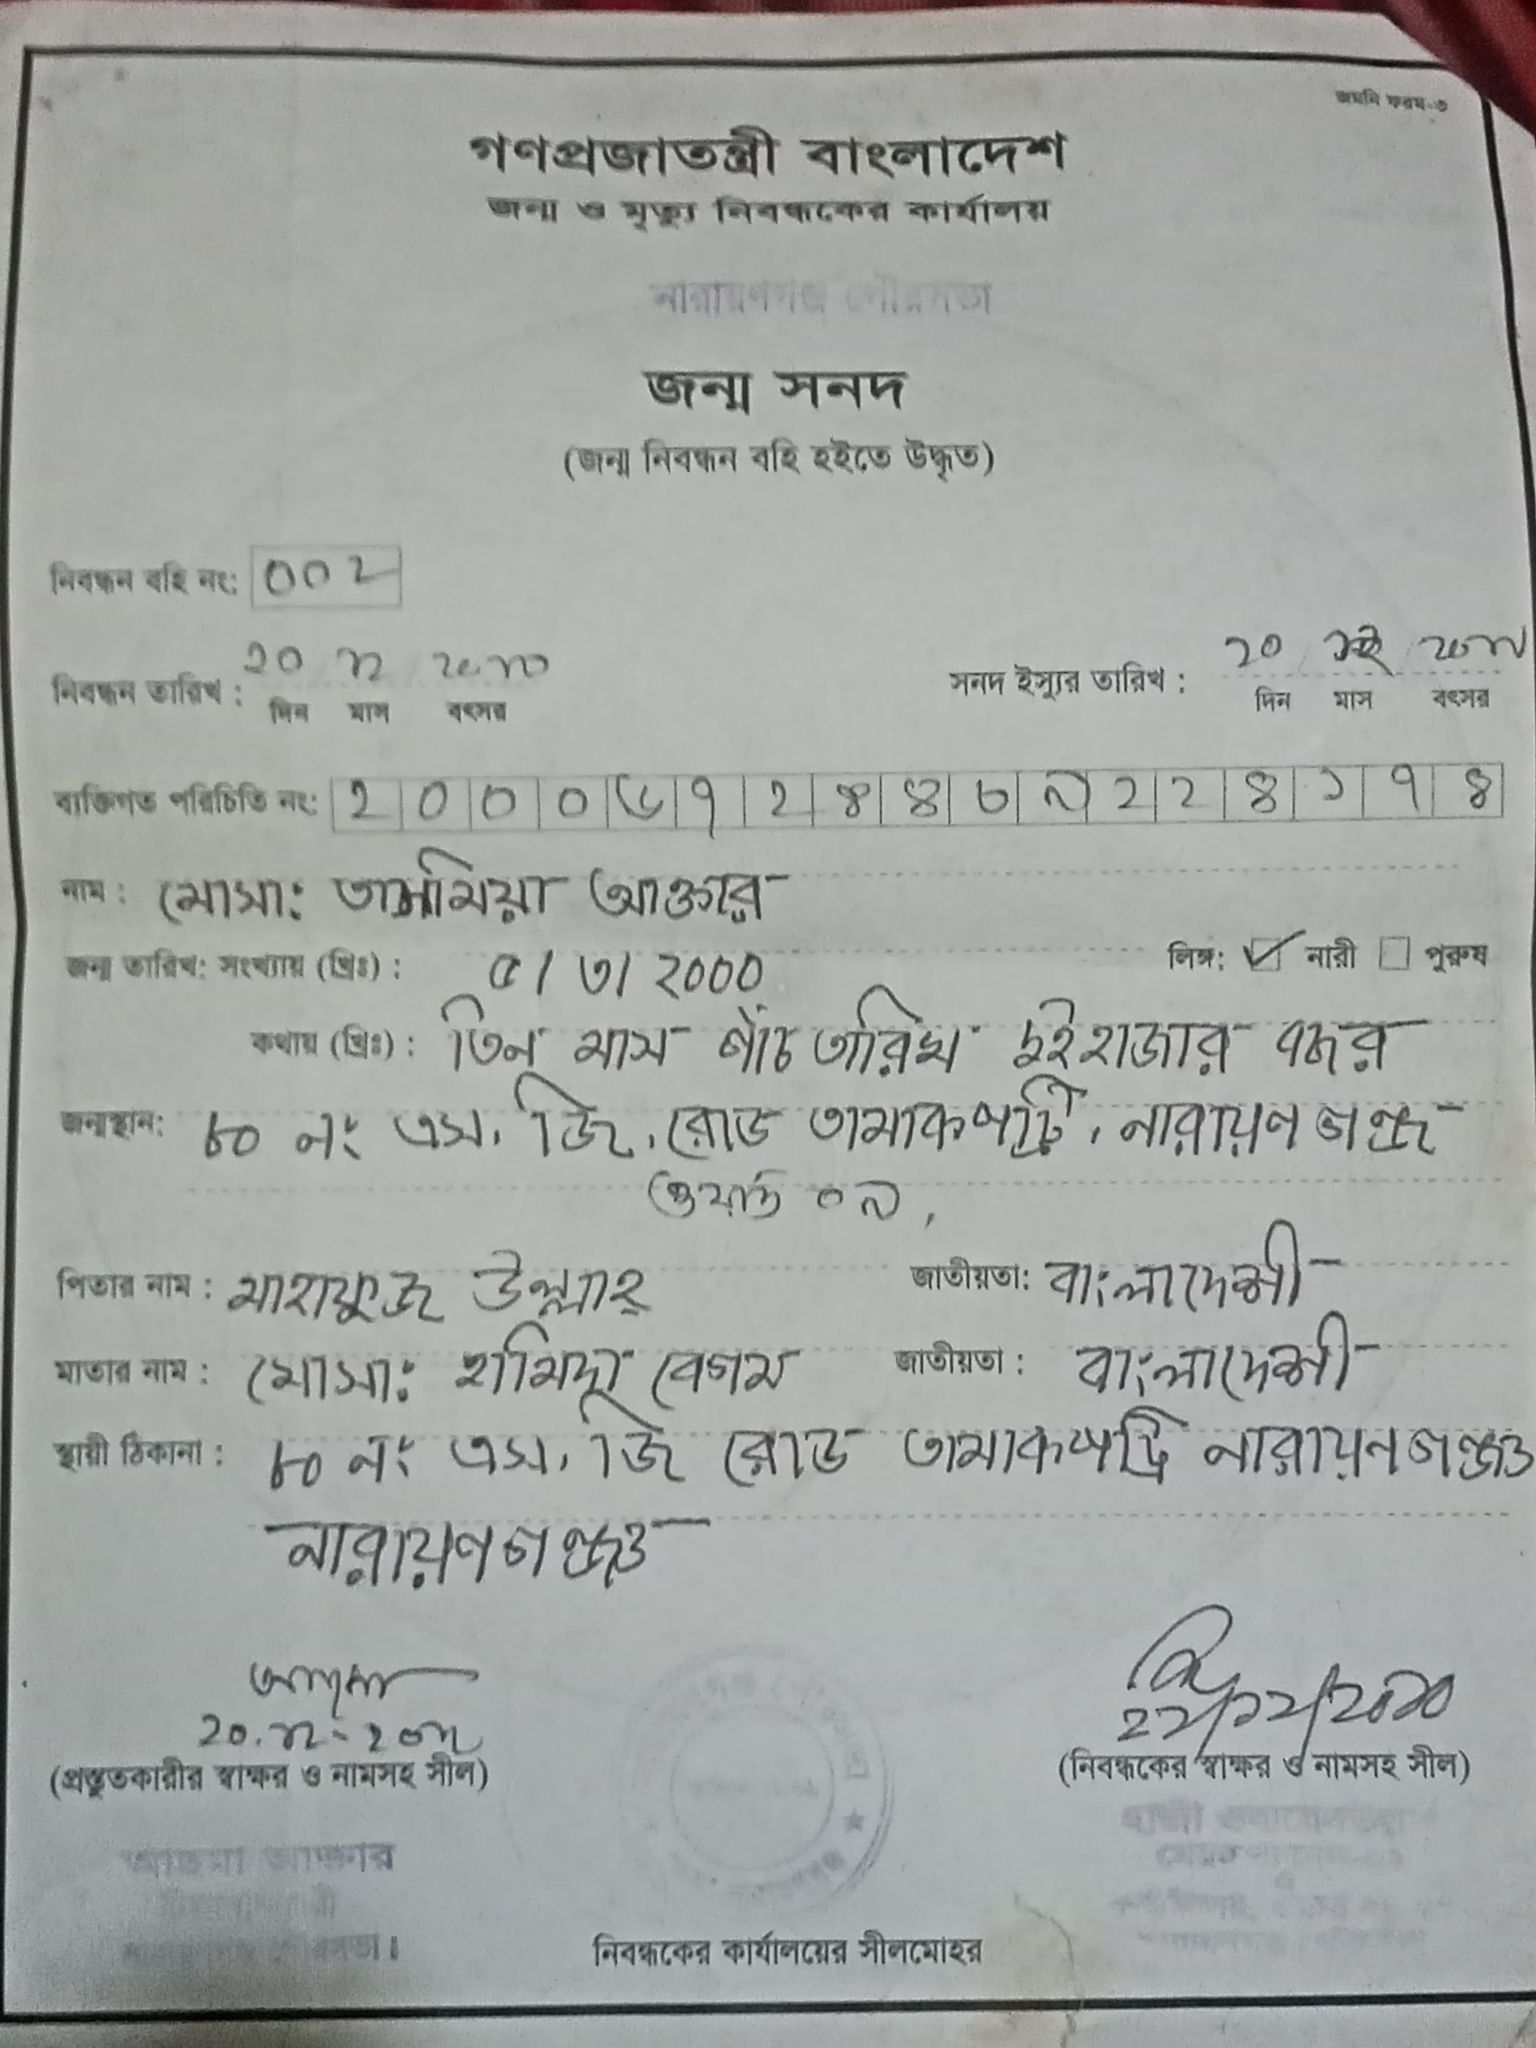 জমনি ফরম-৩
গণপ্রজাতন্ত্রী বাংলাদেশ
জন্ম ও মৃত্যু নিবন্ধকের কার্যালয়
নারায়ণগঞ্জ পৌরসভা
জন্ম সনদ
(জন্ম নিবন্ধন বহি হইতে উদ্ধৃত)
নিবন্ধন বহি নং: ০০২
নিবন্ধন তারিখ : ২০ ১২ ২০১০ সনদ ইস্যুর তারিখ : ২০
দিন মাস বৎসর দিন মাস বৎসর
ব্যক্তিগত পরিচিতি নং: ২ ০ ০ ০ ৬ ৭ ২ ৪ ৪ ৩ ৯ ২ ২ ৪ ১ ৭ ৪
নাম : মোসা: আক্তার
জন্ম তারিখ: সংখ্যায় (খ্রিঃ) : ৫/৩/২০০০ লিঙ্গ: ✓ নারী পুরুষ
কথায় (খ্রিঃ) : তিন মাস পাঁচ তারিখ দুইহাজার বছর
জন্মস্থান: ৮০ নং এস. জি. রোড তামাকপট্টি, নারায়নগঞ্জ
ওয়ার্ড ০৯,
পিতার নাম : মাহফুজ উল্লাহ্ জাতীয়তা: বাংলাদেশী
মাতার নাম : মোসা: হামিদা বেগম জাতীয়তা : বাংলাদেশী
স্থায়ী ঠিকানা : ৮০ নং এস. জি রোড তামাকপট্টি নারায়নগঞ্জ
নারায়ণগঞ্জ
২০.১২.
২২/১২/২০১০
(প্রস্তুতকারীর স্বাক্ষর ও নামসহ সীল) (নিবন্ধকের স্বাক্ষর ও নামসহ সীল)
আক্তার
পৌরসভা।
নিবন্ধকের কার্যালয়ের সীলমোহর